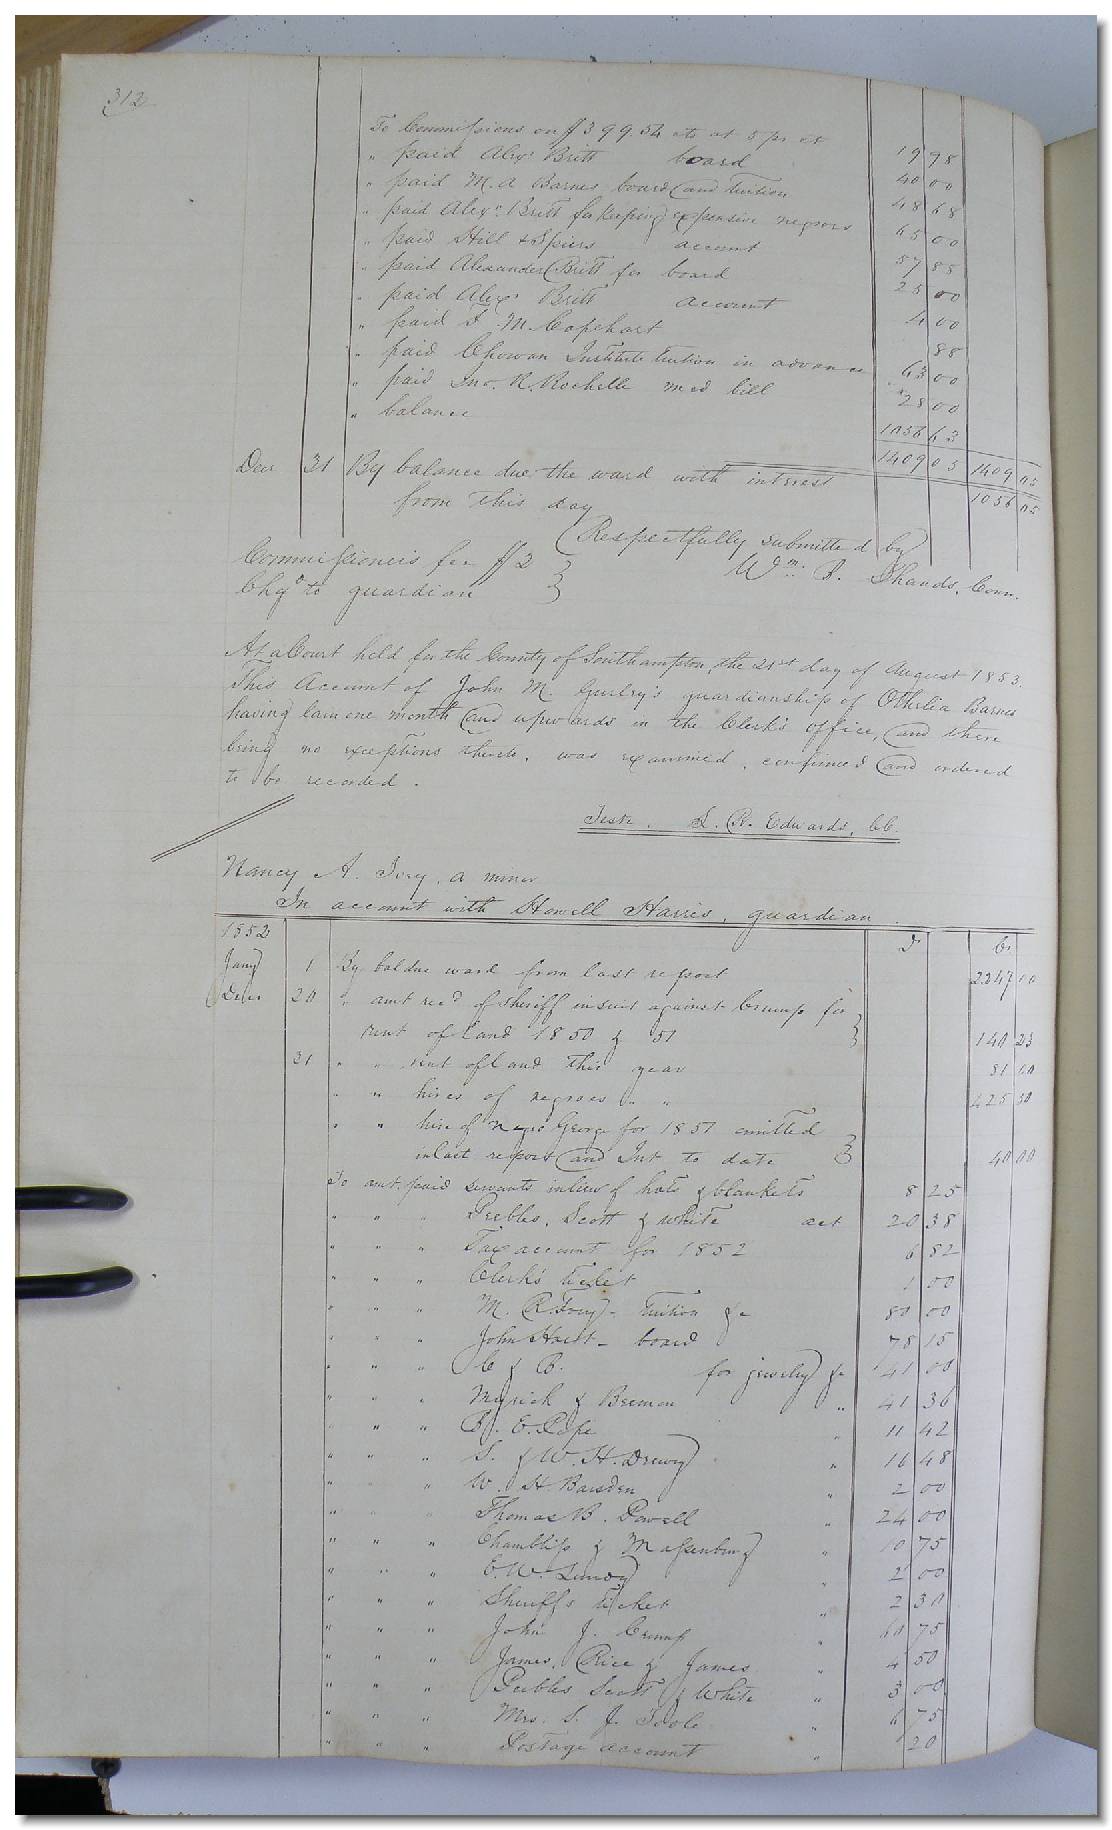 312
To Commissions on $399.54 cts at 5 pr ct 19 98
" paid Alexr Britt board 40 00
" paid M. A Barnes board and tuition 48 68
" paid Alexr Britt for keeping expensive negroes 65 00
" paid Hill & Spiers account 57 85
" paid Alexander Britt for board 25 00
" paid Alexr Britt account 4 00
" paid T. M. Capehart 88
" paid Chowan Institute tuition in advance 63 00
" paid Jno. R. Rochelle med bill 28 00
" balance 1056 63
1409 05 1409 05
Decr 31 By balance due the ward with interest
from this day 1056 05
Respectfully submitted by
Commissioners fee $2
Wm. B. Shands, Comr.
Chgd to guardian
At a Court held for the County of Southampton, the 21st day of August 1853.
This Account of John M. Gurley's guardianship of Othelia Barnes
having lain one month and upwards in the Clerk's office, and there
being no exceptions thereto, was examined, confirmed and ordered
to be recorded.
Teste. L. R. Edwards, CC.
Nancy A. Ivey, a minor
In account with Howell Harris, guardian.
1852 Dr Cr
Jany 1 By bal due ward from last report 2247 10
Decr 20 " amt recd of sheriff in suit against Crump for
rent of land 1850 & 51 140 23
31 " " rent of land this year 81 00
" " hires of negroes " " 425 50
" " hire of negro George for 1851 omitted
in last report and Int to date 40 00
To amt paid servants in lieu of hats & blankets 8 25
" " " Peebles, Scott & White act 20 38
" " " Tax account for 1852 6 82
" " " Clerk's ticket 1 00
" " " M. R. - tuition &c 80 00
" " " John - board 78 15
" " " C & B. for jewelry &c 41 00
" " " & Beeman " 41 36
" " " B. E. Pope " 11 42
" " " S. & W. H. Drewry " 16 48
" " W. H. Barsden " 2 00
" " " Thomas B. Powell " 24 00
" " " Chambliss & Massenburg " 10 75
" " " E. W. " 2 00
" " " Sheriff's ticket " 2 30
" " " John J. Crump " 60 75
" " " James, Rice & James " 4 50
" " " Peebles Scott & White " 3 00
" " " Mrs. S. J. Toole " 6 75
" " " Postage account " 20